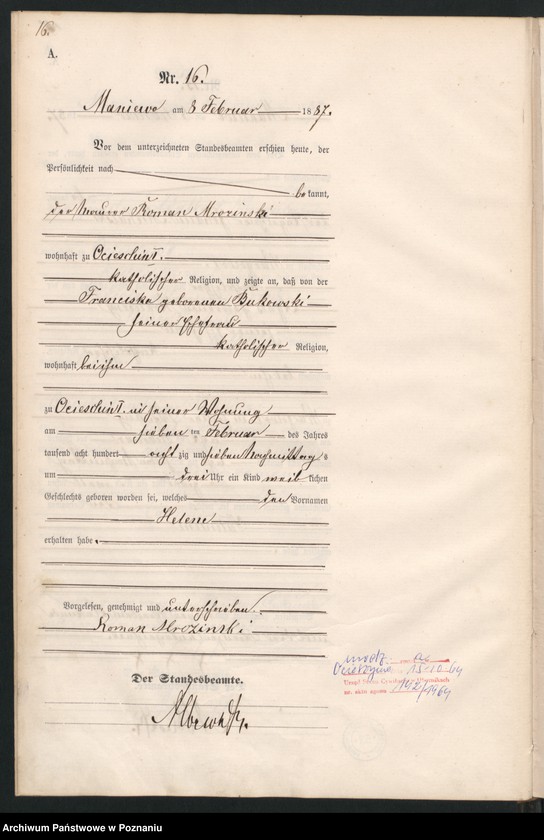 16.
A.
Nr. 16.
Maniewo am 8 Februar 1887.
Vor dem unterzeichneten Standesbeamten erschien heute, der
Persönlichkeit nach
bekannt,
der Maurer Roman Mrozinski
wohnhaft zu Ocieschin I.
katholischer Religion, und zeigte an, daß von der
Franciska geborenen Bukowski
seiner Ehefrau
katholischer Religion,
wohnhaft bei ihm
zu Ocieschin I. in seiner Wohnung
am sieben ten Februar des Jahres
tausend acht hundert acht zig und sieben Nachmittags
um drei Uhr ein Kind weiblichen
Geschlechts geboren worden sei, welches den Vornamen
Helene
erhalten habe.
Vorgelesen, genehmigt und unterschrieben.
Roman Mrozinski
Der Standesbeamte.
15.10.64
Urząd Stanu Cywilnego
nr. aktu zgonu 142/1964
Archiwum Państwowe w Poznaniu